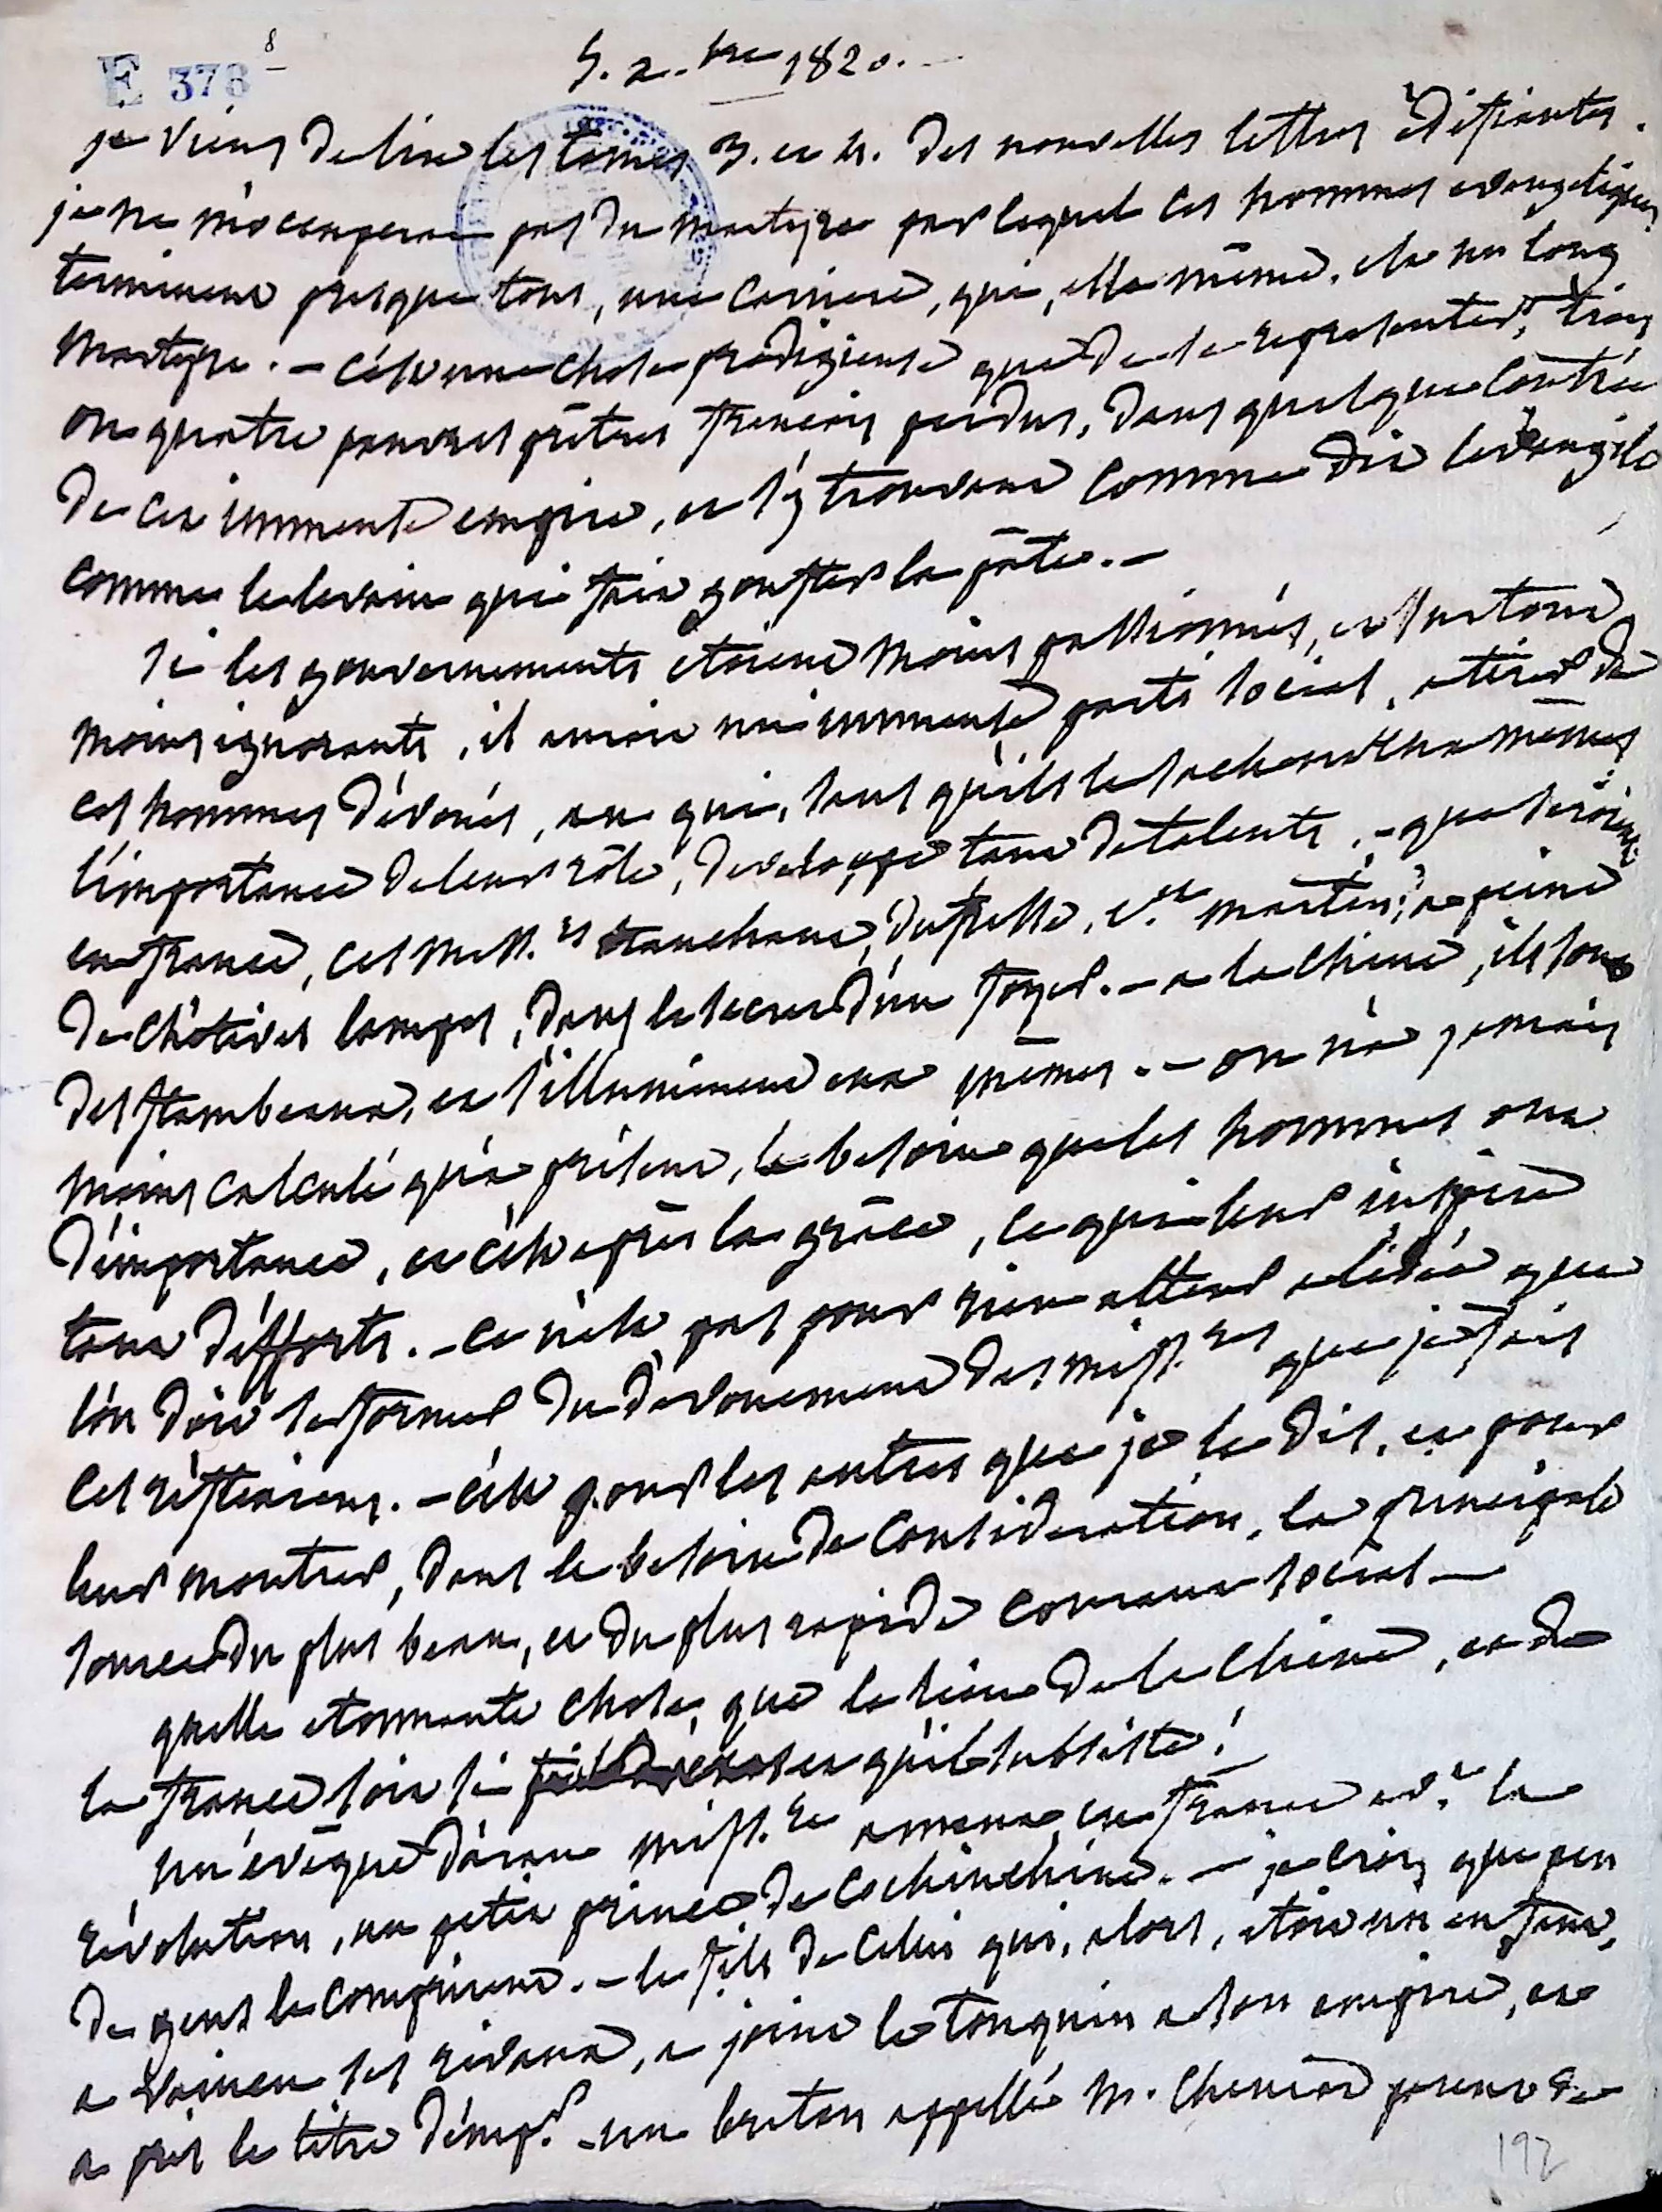 E 378
8
5. X.bre 1820.
je viens de lire les tomes 3. et 4. des nouvelles lettres édifiantes.
je ne m'occuperai pas du martyre par lequel ces hommes evangeliques
terminent presque tous, une carriere, qui, elle même, est un long
martyre. – c'est une chose prodigieuse que de se representer, trois
ou quatre pauvres prêtres francais perdus, dans quelque contrée
de cet immense empire, et s'y trouvant comme dit l'evangile
comme le levain qui fait gonfler la pâte. –
si les gouvernements etoient moins passionnés, et surtout
moins ignorants, il auroit un immense parti social, a tirer de
ces hommes dévoués, en qui, sans qu'ils le sachent eux mêmes
l'importance de leur rôle, developpe tant de talents. – que seroient
en france, ces mess.rs tauchant, dufresse, et martin; a peine
de chétives lampes, dans le secret d'un foyer. – a la chine, ils sont
des flambeaux, et s'illuminent eux mêmes. – on n'a jamais
moins calculé qu'a présent, le besoin que les hommes ont
d'importance, et c'est après la grâce, ce qui leur inspire
tant d'efforts. – ce n'est pas pour rien alterer a l'idée que
l'on doit se former du dévouement des miss.res que je fais
ces réflexions. – c'est pour les autres que je le dis, et pour
leur montrer, dans le besoin de consideration, la principale
source du plus beau, et du plus rapide courant social –
quelle etonnante chose, que le lien de la chine, et de
la france soit si et qu'il subsiste!
un évêque d'adran miss.re amena en france av.t la
révolution, un petit prince de cochinchine. – je crois que peu
de gens le comprirent. – le fils de celui qui, alors, etoit un enfant,
a vaincu ses rivaux, a joint le tonquin a son empire, et
a pris le titre d'emp.r – un breton appellé M. Cheniau parent de
192